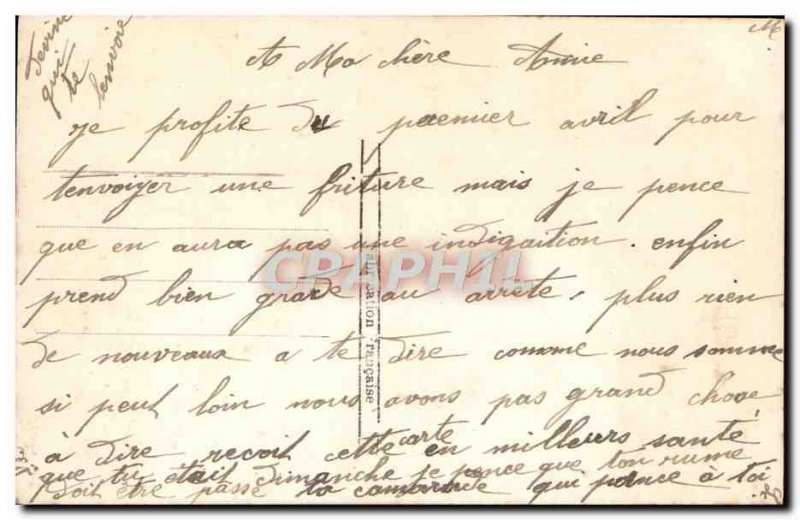 Devine
qui
te
lenvoie
M
A Ma chère Amie
je profite du premier avril pour
tenvoiyer une friture mais je pence
que en aura pas une indigaition. enfin
prend bien grade au arrete. plus rien
de nouveaux a te dire comme nous somme
si peut loin nous avons pas grand chose
à dire recoit cette carte en milleurs santé
que tu était dimanche je pence que ton rume
doit être passe ta camarade qui pence à toi
Fabrication Française
CPAPHIL